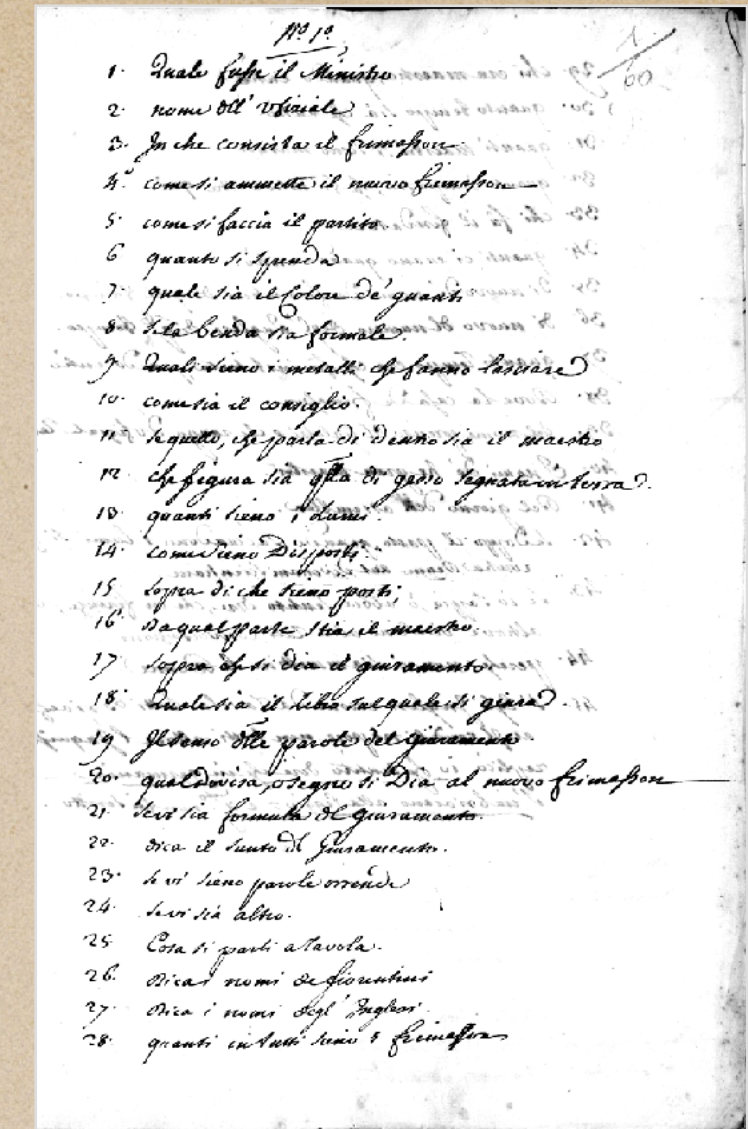 N.º 1.º
1
60
1. Quale fusse il Ministro
2. nome dell' Vfiziale
3. In che consista il frimesson.
4. come si ammette il nuovo frimesson
5. come si faccia il partito.
6 quanto si spenda
7. quale sia il Colore de' guanti
8. se la benda sia formale.
9. Quali sieno i metalli che fanno lasciare
10. come sia il consiglio.
11. se quello, che parla di dentro sia il maestro
12. che figura sia qlla di gesso segnata in terra.
13. quanti sieno i Lumi.
14. come sieno Disposti.
15 sopra di che sieno posti;
16. Da qual parte stia il maestro.
17. sopra che si dia il giuramento.
18. Quale sia il Libro sul quale si giura.
19 Il senso dlle parole del giuramento.
20. qual Divisa, o segno si Dia al nuovo frimesson
21. se vi sia formula del giuramento.
22. dica il sunto del Giuramento.
23. se vi sieno parole orrende
24. se vi sia altro.
25 Cosa si parli a Tavola.
26. Dica i nomi de fiorentini
27. Dica i nomi degl' Inglesi
28. quanti in tutti sieno i frimesson